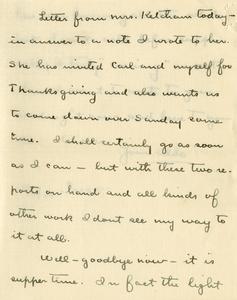 Letter from Mrs. Ketcham today -
in answer to a note I wrote to her.
She has invited Carl and myself for
Thanksgiving and also wants us
to come down over Sunday some
time. I shall certainly go as soon
as I can - but with these two re-
ports on hand and all kinds of
other work I dont see my way to
it at all.
Well - goodbye now - it is
supper time. In fact the light